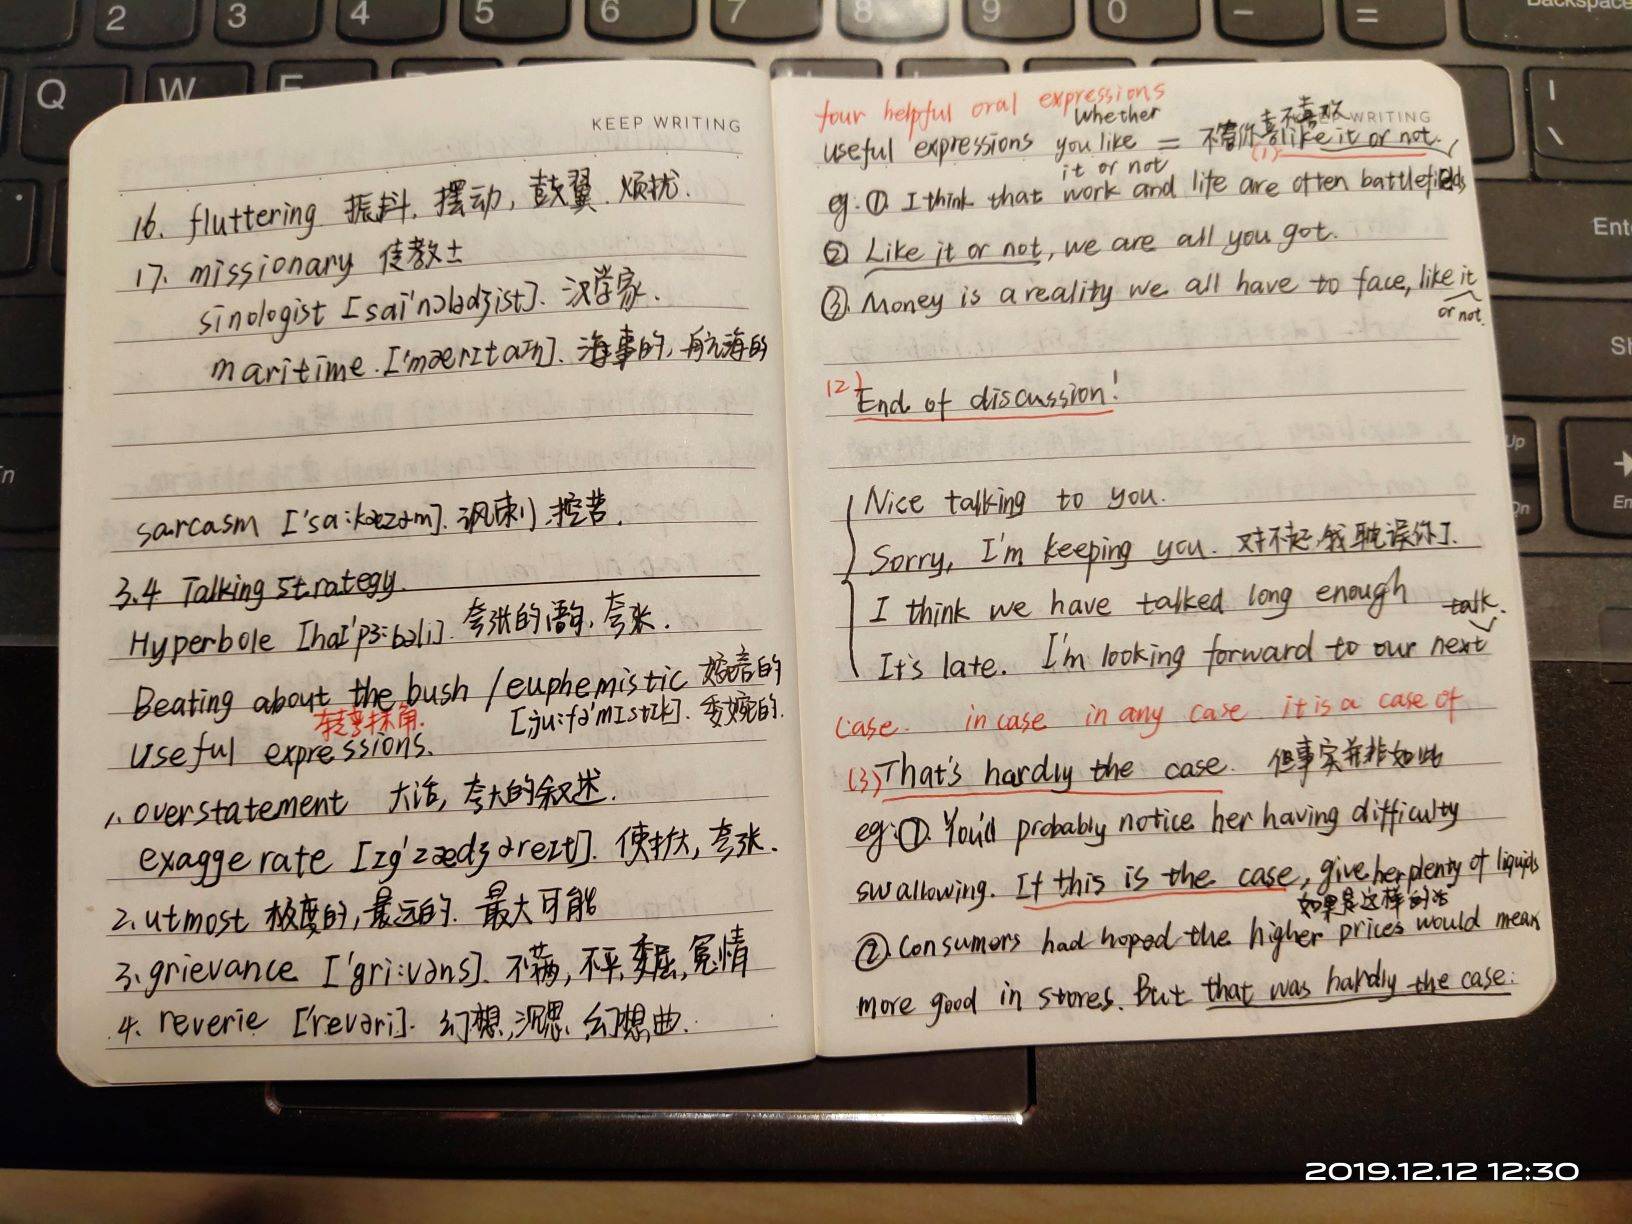 KEEP WRITING
16. fluttering 振抖, 摆动, 鼓翼. 烦扰.
17. missionary 传教士
sinologist [sai'nɔlədʒist]. 汉学家.
maritime. ['mærɪtaɪn]. 海事的, 航海的
sarcasm ['sa:kæzəm]. 讽刺, 挖苦.
3.4 Talking strategy.
Hyperbole [haɪ'pɜ:bəli]. 夸张的语句, 夸张.
Beating about the bush / euphemistic 婉言的
转弯抹角. [,ju:fə'mɪstɪk]. 委婉的.
Useful expressions.
1. overstatement 大话, 夸大的叙述.
exaggerate [ɪg'zædʒəreɪt]. 使扩大, 夸张.
2. utmost 极度的, 最远的. 最大可能
3. grievance ['gri:vəns]. 不满, 不平, 委屈, 冤情
4. reverie ['revəri]. 幻想, 沉思, 幻想曲.
four helpful oral expressions
WRITING
useful expressions whether you like it or not = 不管你喜不喜欢 (1) like it or not.
eg. ①. I think that work and life are often battlefields
②. Like it or not, we are all you got.
③. Money is a reality we all have to face, like it
or not.
(2) End of discussion!
Nice talking to you.
Sorry, I'm keeping you. 对不起, 我耽误你了.
I think we have talked long enough
talk.
It's late. I'm looking forward to our next
case. in case in any case it is a case of
(3) That's hardly the case. 但事实并非如此
eg: ①. You'll probably notice her having difficulty
swallowing. If this is the case, give her plenty of liquids
如果是这样的话
②. Consumers had hoped the higher prices would mean
more good in stores. But that was hardly the case.
2 3 4 5 6 7 8 9 0 - = Backspace
Q W E
Enter
Up
2019.12.12 12:30